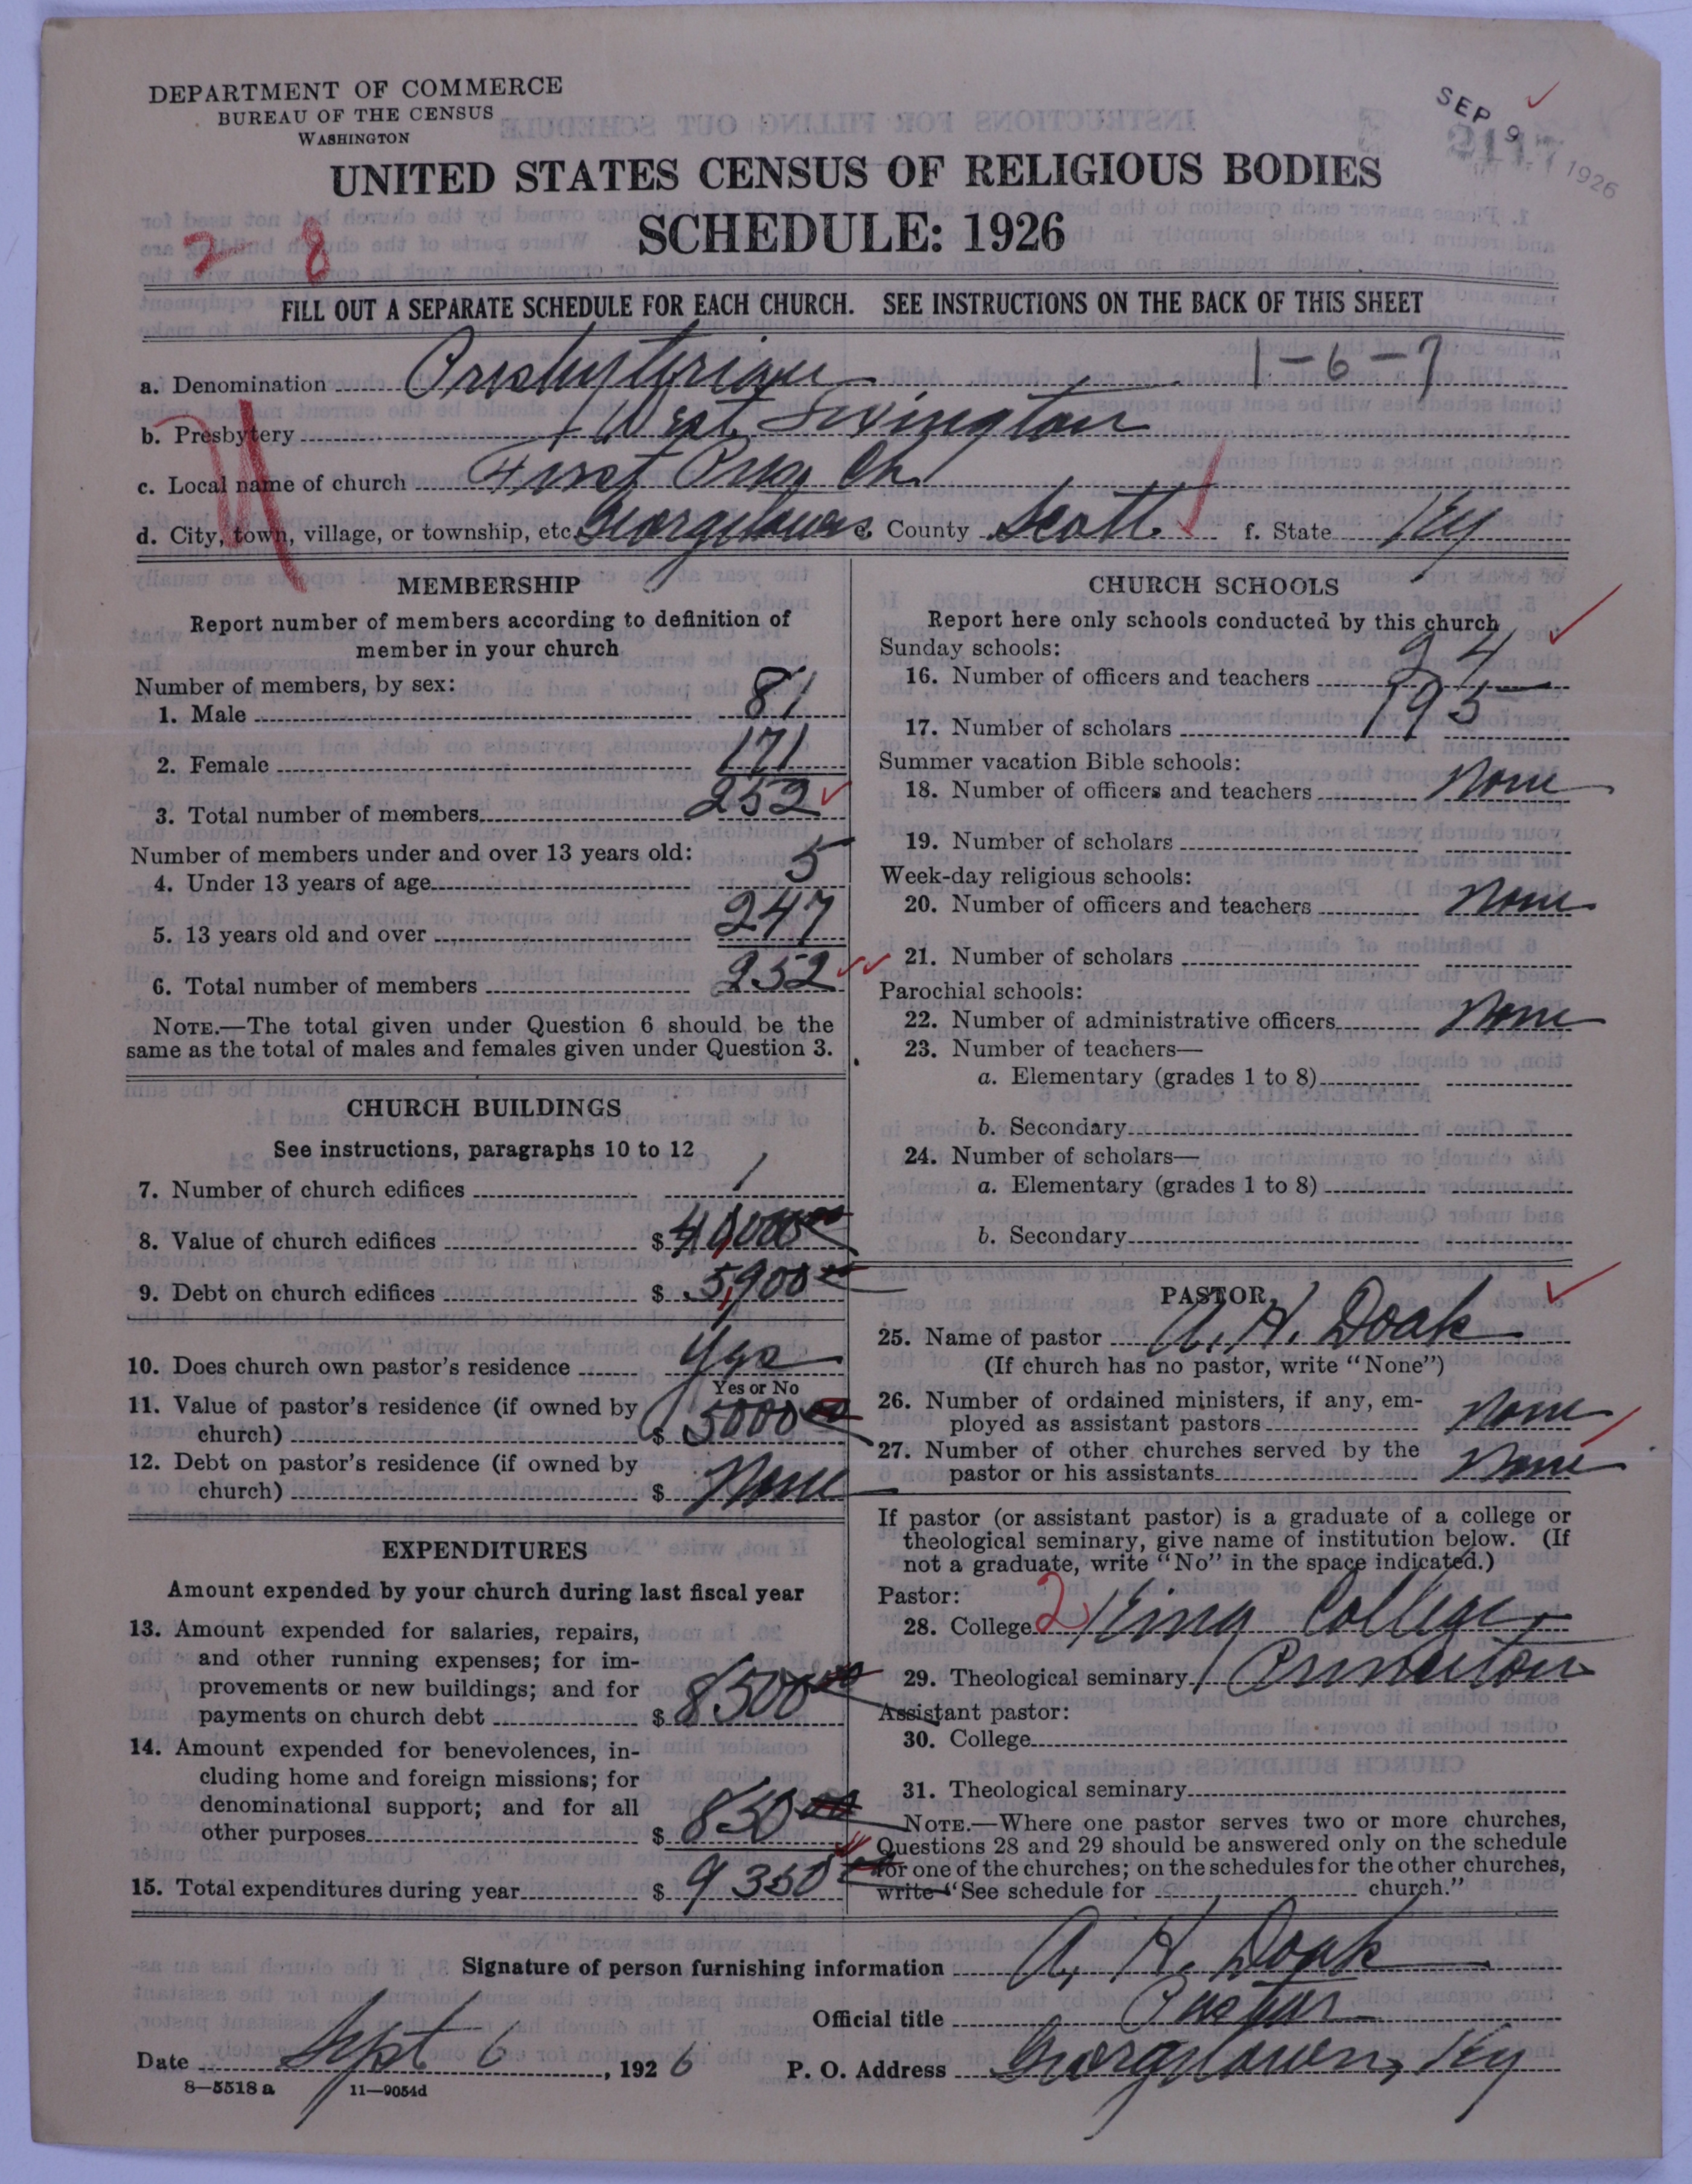 DEPARTMENT OF COMMERCE
BUREAU OF THE CENSUS
WASHINGTON
SEP 9 1926
UNITED STATES CENSUS OF RELIGIOUS BODIES
SCHEDULE: 1926
2 8
FILL OUT A SEPARATE SCHEDULE FOR EACH CHURCH. SEE INSTRUCTIONS ON THE BACK OF THIS SHEET
a. Denomination Presbyterian 1-6-7
b. Presbytery West Lexington
c. Local name of church First Pres. Ch.
d. City, town, village, or township, etc. Georgetown e. County Scott f. State Ky
MEMBERSHIP
Report number of members according to definition of
member in your church
Number of members, by sex:
1. Male 81
2. Female 171
3. Total number of members 252
Number of members under and over 13 years old:
4. Under 13 years of age 5
5. 13 years old and over 247
6. Total number of members 252
NOTE.—The total given under Question 6 should be the
same as the total of males and females given under Question 3.
CHURCH BUILDINGS
See instructions, paragraphs 10 to 12
7. Number of church edifices 1
8. Value of church edifices $ 40,000 00
9. Debt on church edifices $ 5,900
10. Does church own pastor's residence Yes
Yes or No
11. Value of pastor's residence (if owned by
church) $ 5000 00
12. Debt on pastor's residence (if owned by
church) $ None
EXPENDITURES
Amount expended by your church during last fiscal year
13. Amount expended for salaries, repairs,
and other running expenses; for im-
provements or new buildings; and for
payments on church debt $ 8500 00
14. Amount expended for benevolences, in-
cluding home and foreign missions; for
denominational support; and for all
other purposes $ 850 00
15. Total expenditures during year $ 9350
CHURCH SCHOOLS
Report here only schools conducted by this church
Sunday schools:
16. Number of officers and teachers 24
17. Number of scholars 195
Summer vacation Bible schools:
18. Number of officers and teachers None
19. Number of scholars
Week-day religious schools:
20. Number of officers and teachers None
21. Number of scholars
Parochial schools:
22. Number of administrative officers None
23. Number of teachers—
a. Elementary (grades 1 to 8)
b. Secondary
24. Number of scholars—
a. Elementary (grades 1 to 8)
b. Secondary
PASTOR
25. Name of pastor A. H. Doak
(If church has no pastor, write "None")
26. Number of ordained ministers, if any, em-
ployed as assistant pastors None
27. Number of other churches served by the
pastor or his assistants None
If pastor (or assistant pastor) is a graduate of a college or
theological seminary, give name of institution below. (If
not a graduate, write "No" in the space indicated.)
Pastor:
28. College 2 King College
29. Theological seminary Princeton
Assistant pastor:
30. College
31. Theological seminary
NOTE.—Where one pastor serves two or more churches,
Questions 28 and 29 should be answered only on the schedule
for one of the churches; on the schedules for the other churches,
write "See schedule for church."
Signature of person furnishing information A. H. Doak
Official title Pastor
Date Sept 6, 1926 P. O. Address Georgetown, Ky
8—5518 a 11—9054d